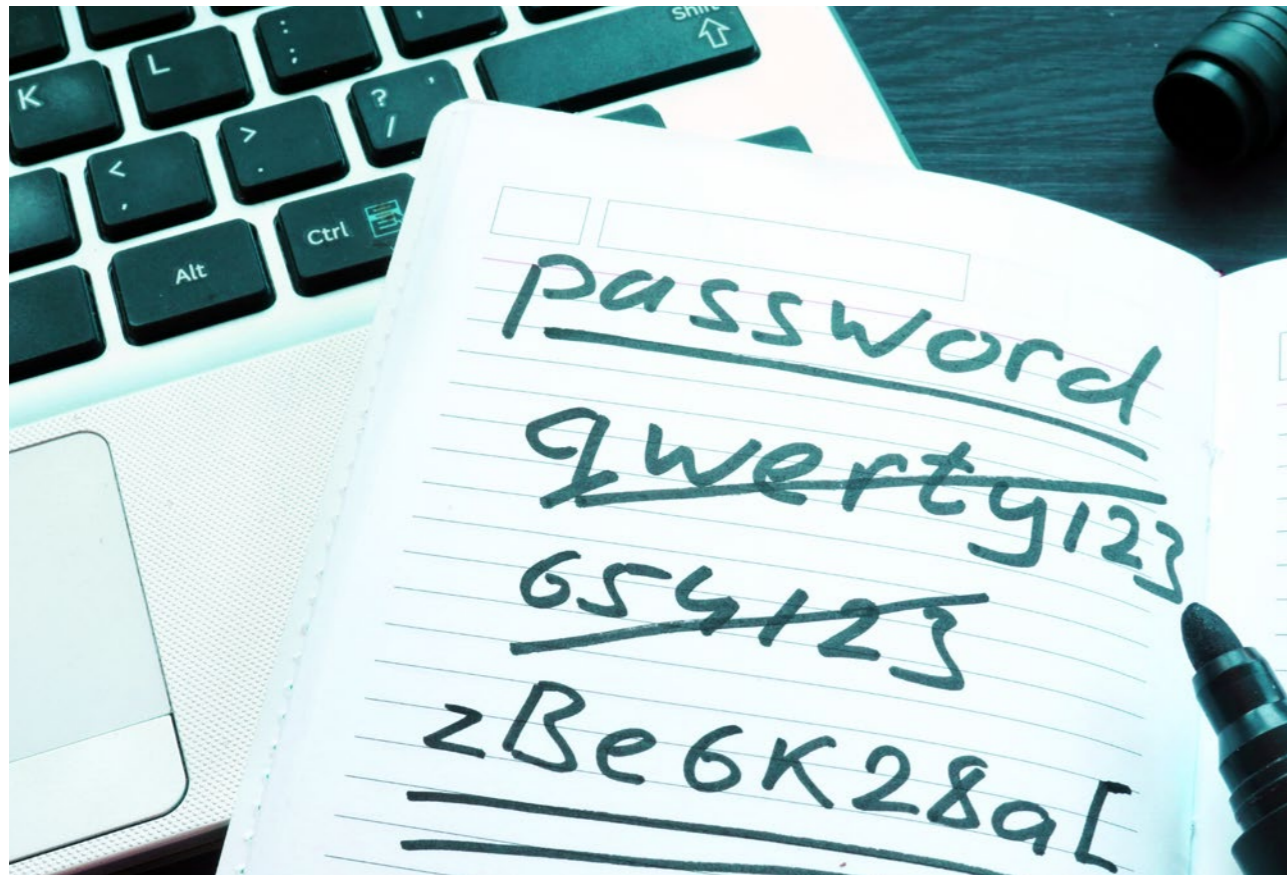 Shift
K
L
: ;
? /
> .
< ,
Ctrl
Alt
password
qwerty123
654123
zBe6K28a[